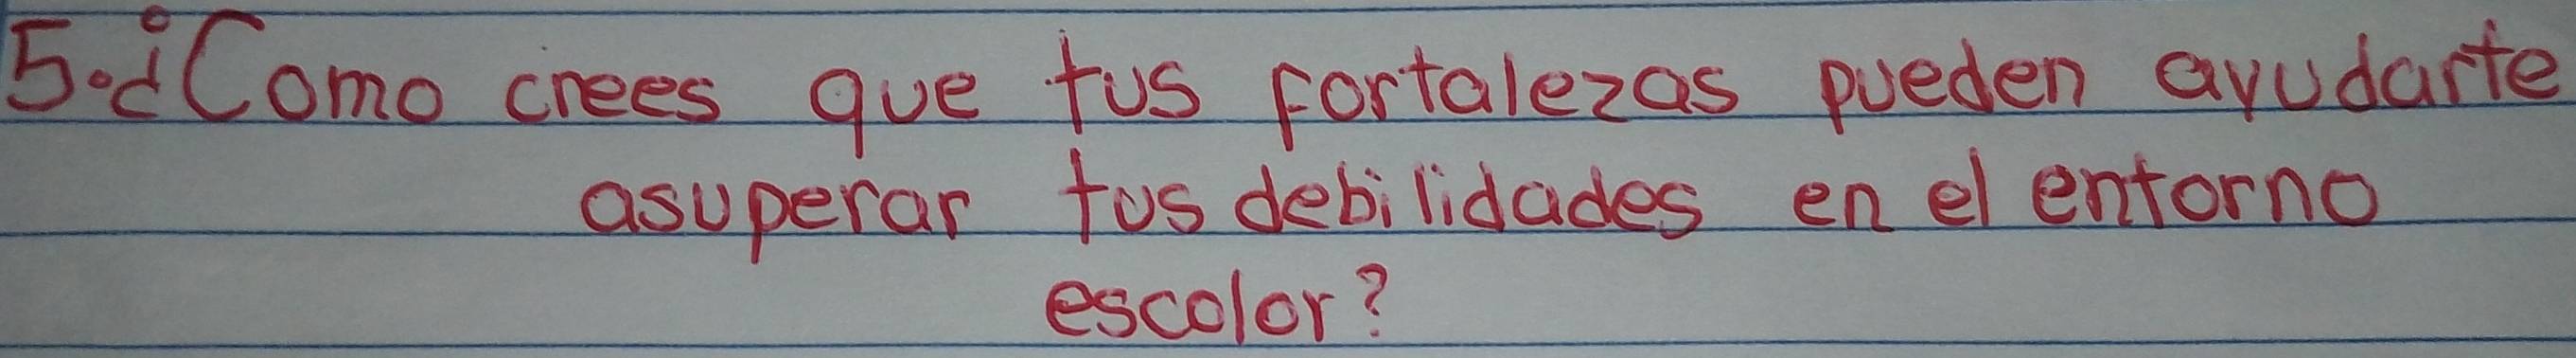 5. ¿Como crees que tus fortalezas pueden ayudarte
asuperar tus debilidades en el entorno
escolor?